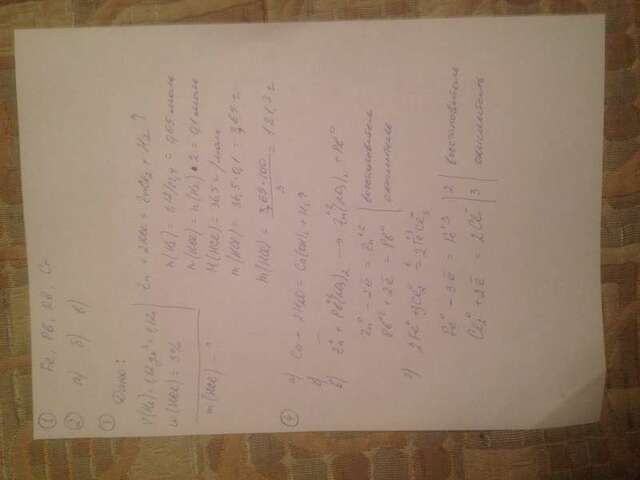 ① Fe, Pb, Rb, Cr
② а) б) в)
③ Дано:
V(H₂) = 1,12 дм³ = 1,12 л
w(HCl) = 3%
m(HCl) - ?
Zn + 2HCl = ZnCl₂ + H₂ ↑
n(H₂) = 1,12/22,4 = 0,05 моль
n(HCl) = n(H₂) • 2 = 0,1 моль
M(HCl) = 36,5 г/моль
m(HCl) = 36,5 • 0,1 = 3,65 г
m(HCl) = 3,65 • 100 / 3 = 121,7 г
④ а) Ca + 2H₂O = Ca(OH)₂ + H₂ ↑
б) —
в) Zn⁰ + Pb⁺²(NO₃)₂ → Zn⁺²(NO₃)₂ + Pb⁰
Zn⁰ - 2ē = Zn⁺² | восстановитель
Pb⁺² + 2ē = Pb⁰ | окислитель
г) 2Fe⁰ + 3Cl₂⁰ = 2Fe⁺³Cl₃
Fe⁰ - 3ē = Fe⁺³ | 2 | восстановитель
Cl₂⁰ + 2ē = 2Cl⁻ | 3 | окислитель